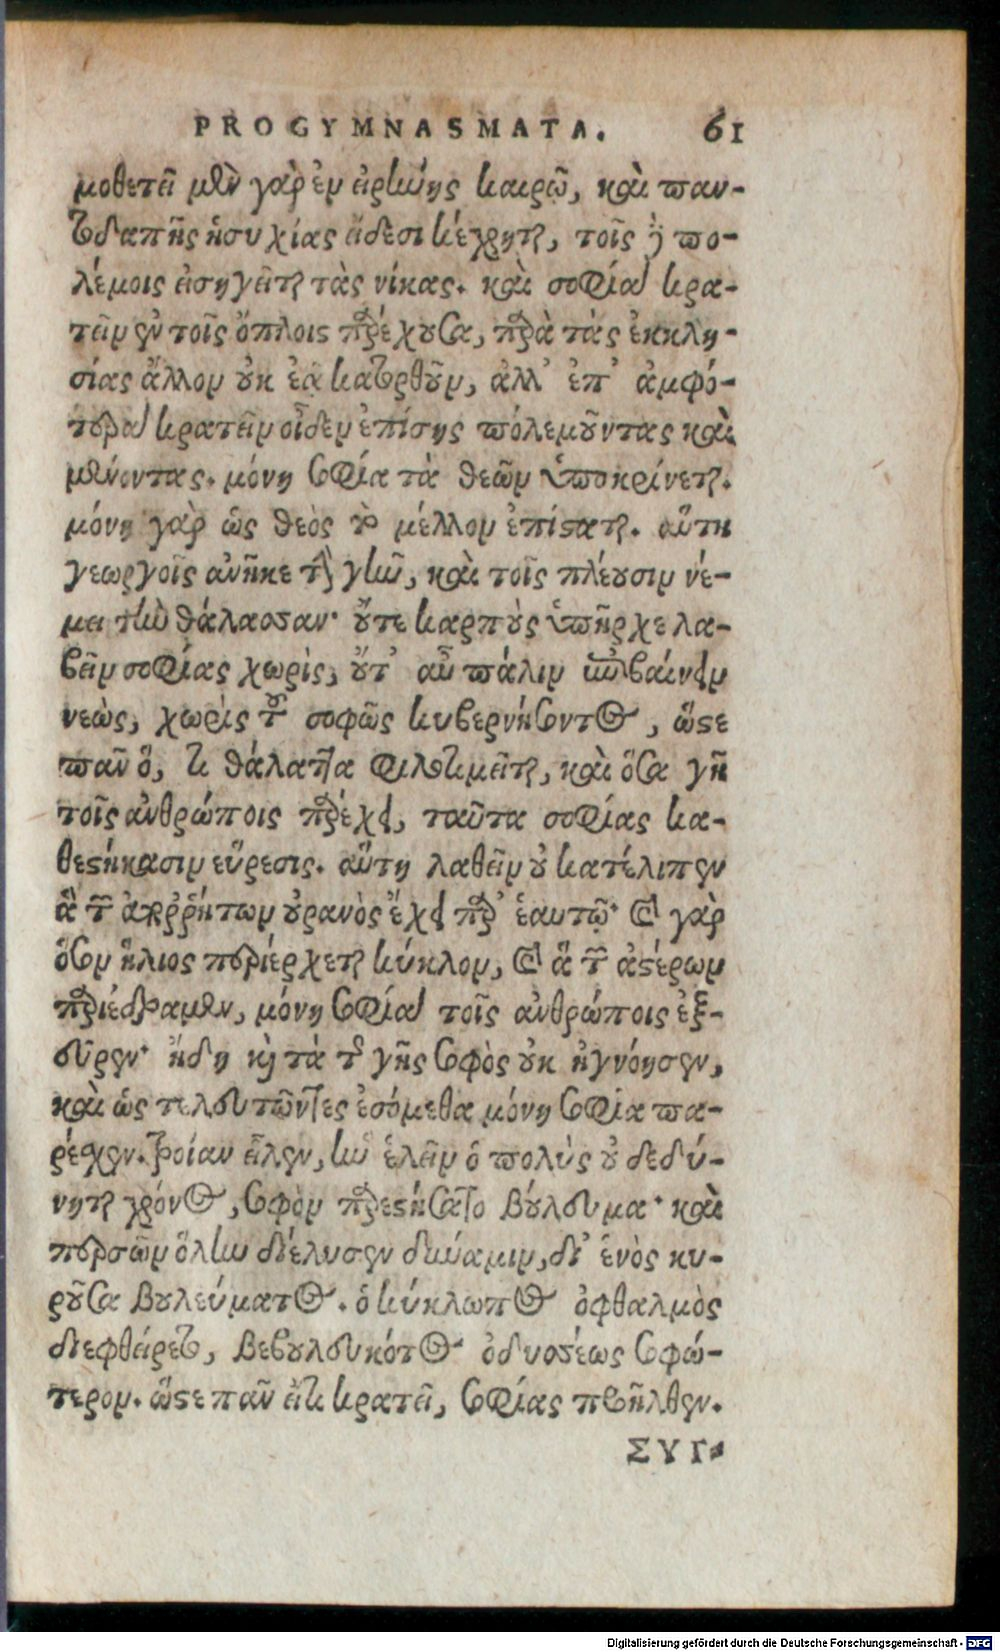 PROGYMNASMATA. 61
μοθετεῖ μὲν γὰρ ἐν εἰρήνης καιρῷ, καὶ παν-
τοδαπῆς ἡσυχίας εἴδεσι κέχρηται, τοῖς δὲ πο-
λέμοις εἰσηγεῖται τὰς νίκας. καὶ σοφία κρα-
τεῖν ἐν τοῖς ὅπλοις παρέχουσα, παρὰ τὰς ἐκκλη-
σίας ἄλλον οὐκ ἐᾷ κατορθοῦν, ἀλλ' ἐπ' ἀμφό-
τερα κρατεῖν οἶδεν ἐπίσης πολεμοῦντας καὶ
μένοντας. μόνη σοφία τὰ θεῶν ὑποκρίνεται.
μόνη γὰρ ὡς θεὸς τὸ μέλλον ἐπίσταται. αὕτη
γεωργοῖς ἀνῆκε τὴν γῆν, καὶ τοῖς πλέουσιν νέ-
μει τὴν θάλασσαν· οὔτε καρποὺς ὑπῆρχε λα-
βεῖν σοφίας χωρὶς, οὔτ' αὖ πάλιν ἐπιβαίνειν
νεὼς, χωρὶς τοῦ σοφῶς κυβερνήσοντος, ὥστε
πᾶν ὅ, τι θάλαττα φιλοτιμεῖται, καὶ ὅσα γῆ
τοῖς ἀνθρώποις παρέχει, ταῦτα σοφίας κα-
θεστήκασιν εὕρεσις. αὕτη λαθεῖν οὐ κατέλιπεν
ἃ τῶν ἀπορρήτων οὐρανὸς ἔχει παρ' ἑαυτῷ· καὶ γὰρ
ὅσον ἥλιος περιέρχεται κύκλον, καὶ ἃ τῶν ἀστέρων
περιέδραμεν, μόνη σοφία τοῖς ἀνθρώποις ἐξ-
εῦρεν· ἤδη καὶ τὰ τῆς γῆς σοφὸς οὐκ ἠγνόησεν,
καὶ ὡς τελευτῶντες ἐσόμεθα μόνη σοφία πα-
ρέσχεν. Τροίαν εἷλεν, ἣν ἑλεῖν ὁ πολὺς οὐ δεδύ-
νηται χρόνος, σοφὸν παρεστήσατο βούλευμα· καὶ
περσῶν ὅλην διέλυσεν δύναμιν, δι' ἑνὸς κυ-
ροῦσα βουλεύματος. ὁ κύκλωπος ὀφθαλμὸς
διεφθείρετο, βεβουλευκότος ὀδυσσέως σοφώ-
τερον. ὥστε πᾶν εἴ τι κρατεῖ, σοφίας προῆλθεν.
ΣΥΓ-
Digitalisierung gefördert durch die Deutsche Forschungsgemeinschaft - DFG